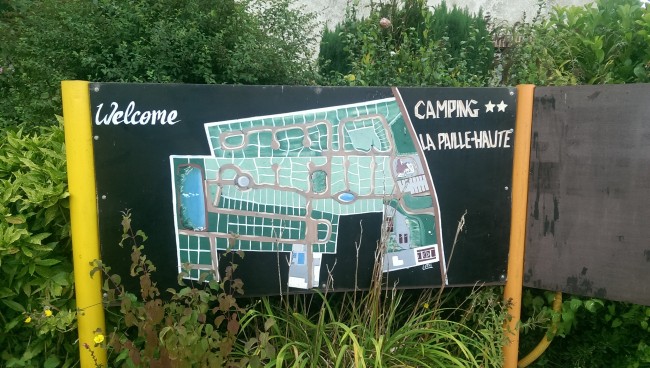 Welcome
CAMPING ★★
LA PAILLE-HAUTE